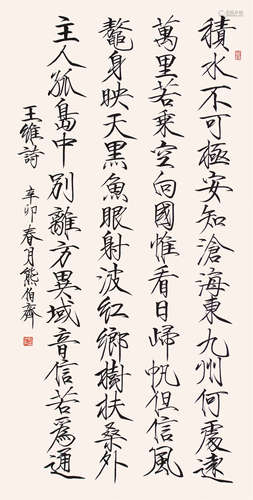 積水不可極安知滄海東九州何處遠
萬里若乘空向國惟看日歸帆但信風
鰲身映天黑魚眼射波紅鄉樹扶桑外
主人孤島中別離方異域音信若為通
王維詩 辛卯春月熊伯齊